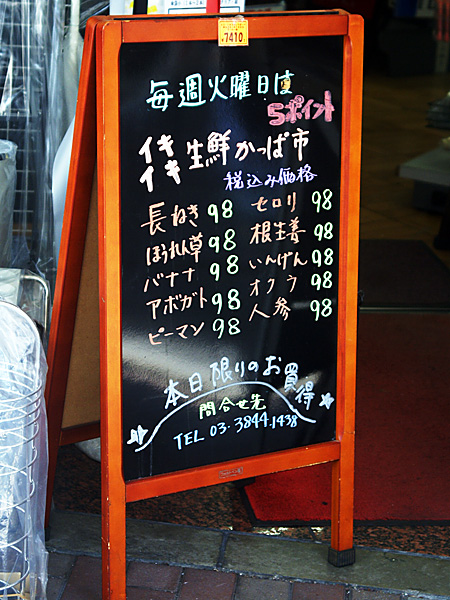 7410
毎週火曜日は
5ポイント
イキイキ生鮮かっぱ市
税込み価格
長ねぎ 98
ほうれん草 98
バナナ 98
アボガト 98
ピーマン 98
セロリ 98
根生姜 98
いんげん 98
オクラ 98
人参 98
本日限りのお買得
問合せ先
TEL 03.3844.1438